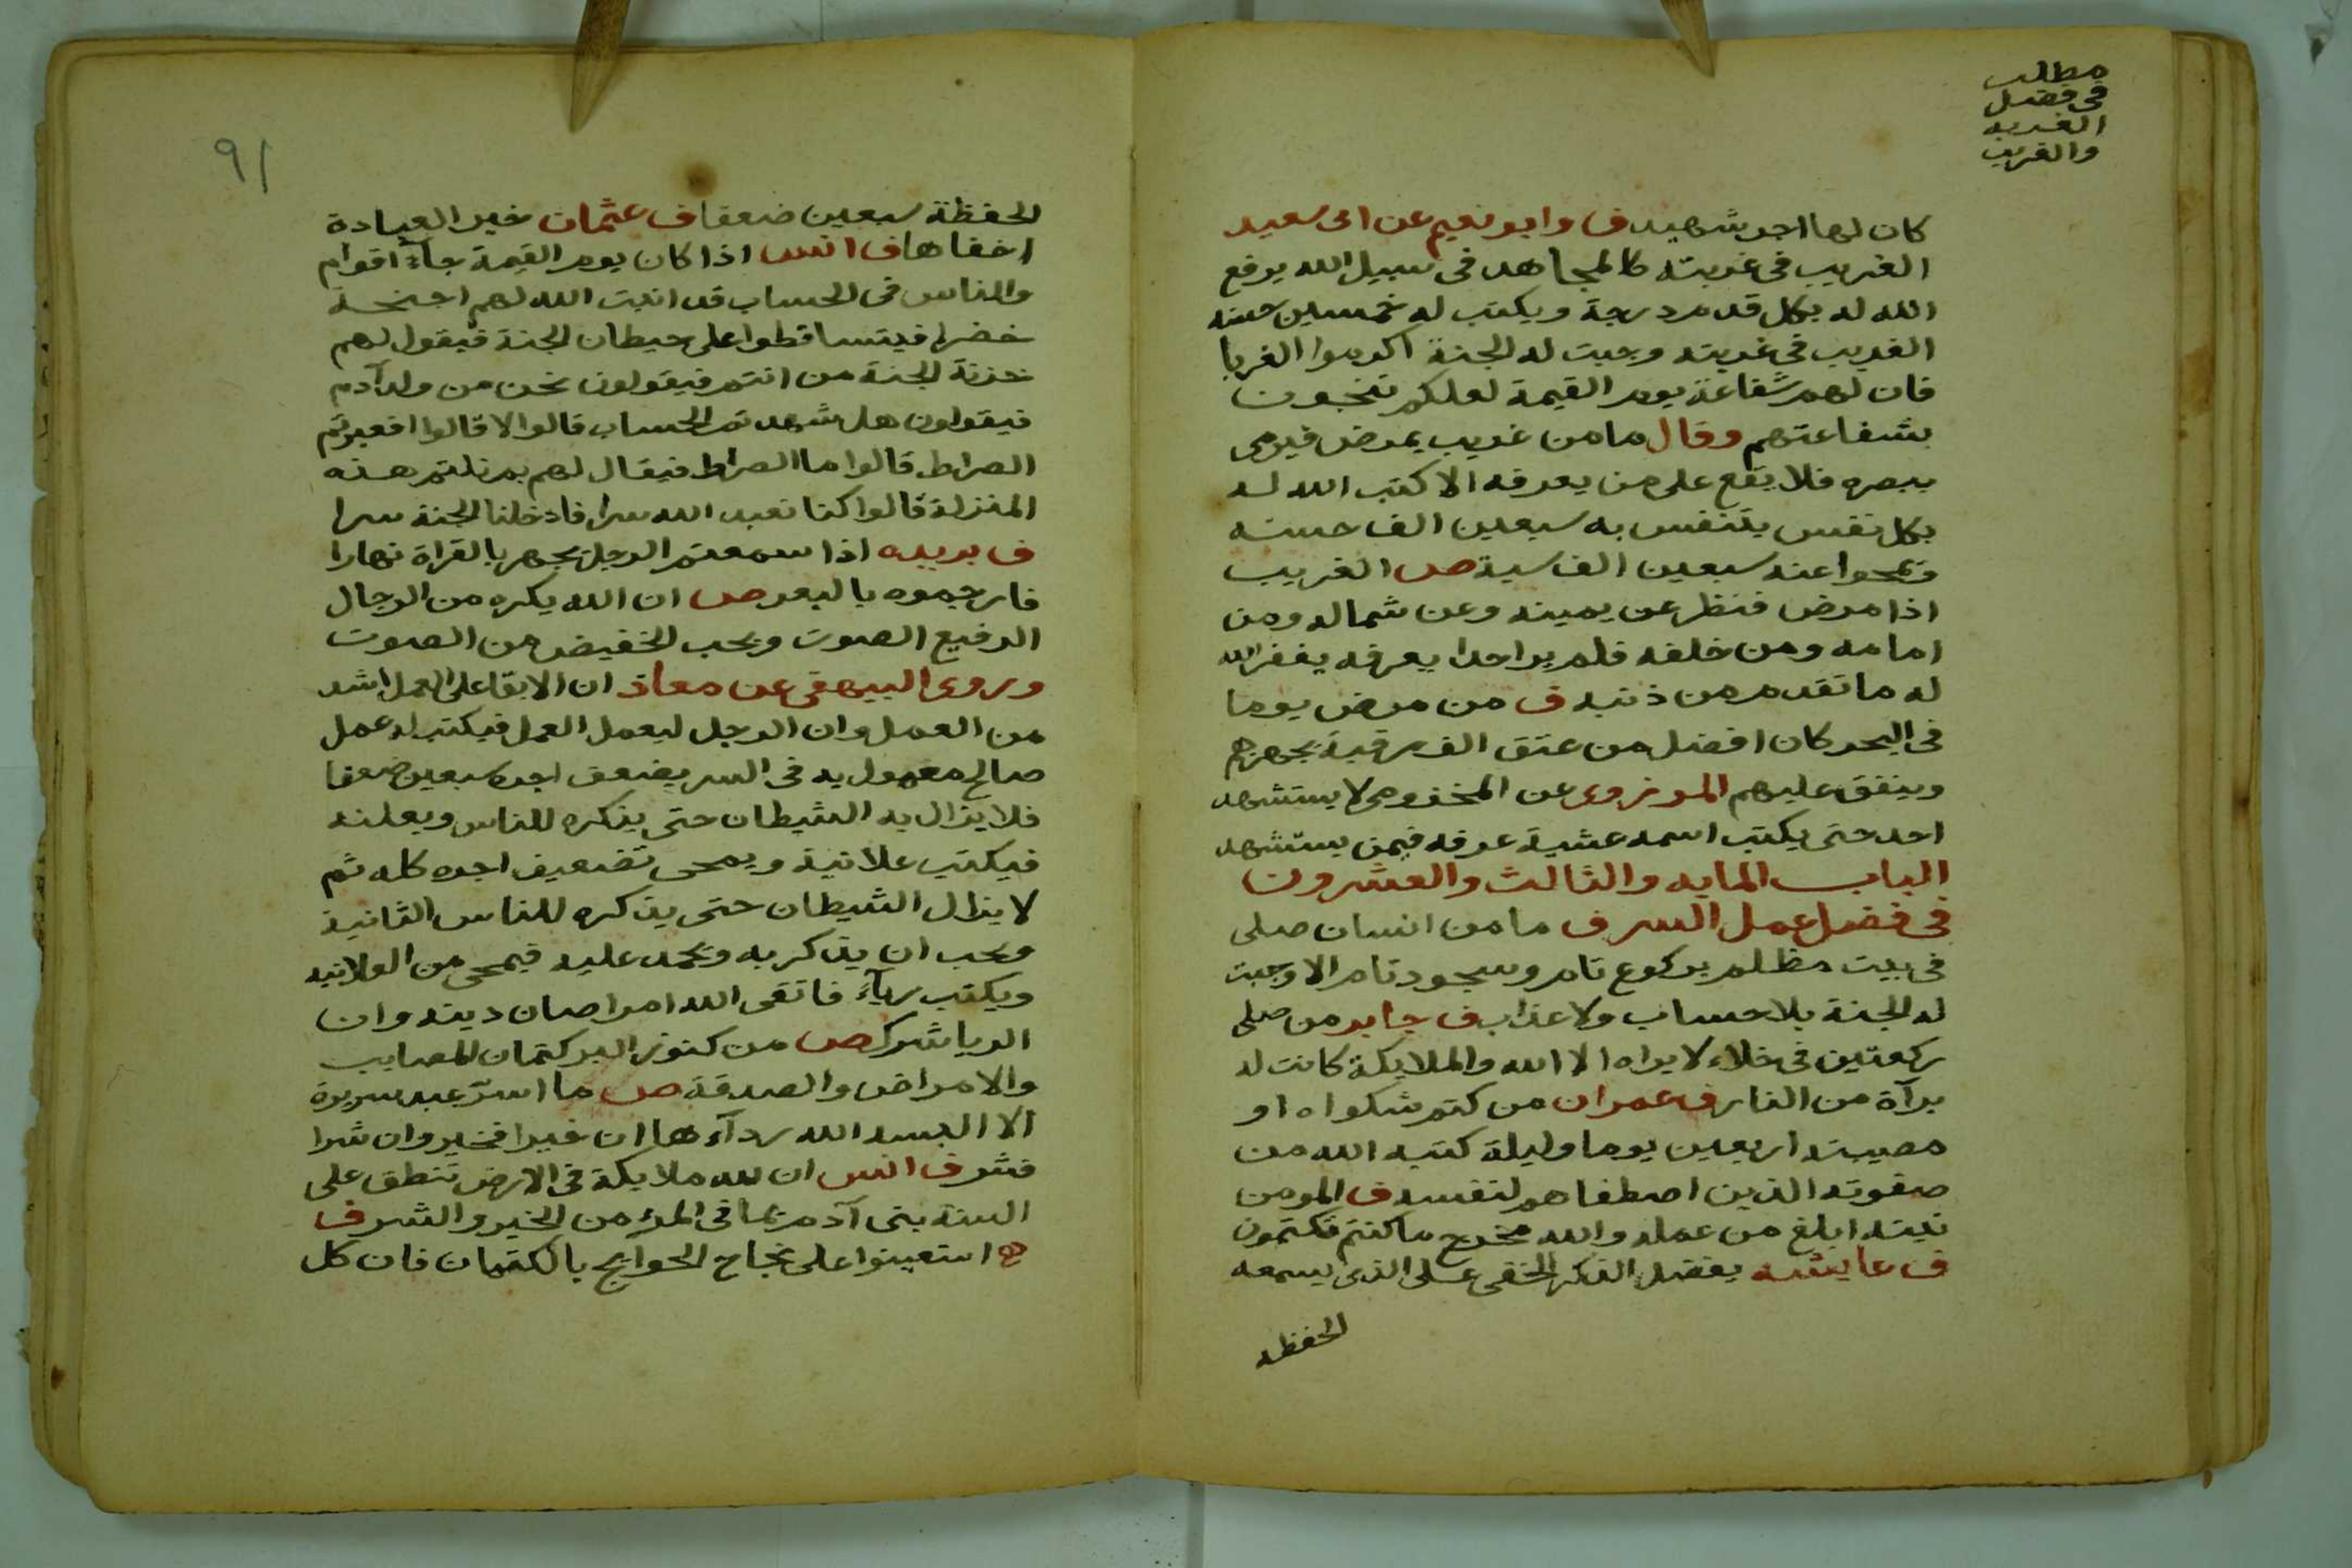 مطلب
في فضل
الغربه
والغريب
كان لها اجر شهيد ف وابو نعيم عن ابى سعيد
الغريب فى غربته كالمجاهد فى سبيل الله يرفع
الله له بكل قدم درجة ويكتب له خمسين حسنه
الغريب فى غربته وجبت له الجنة اكرموا الغربا
فان لهم شفاعة يوم القيمة لعلكم تنجون
بشفاعتهم وقال ما من غريب يمرض فيرمى
ببصره فلا يقع على من يعرفه الا كتب الله له
بكل نفس يتنفس به سبعين الف حسنه
ويمحوا عنه سبعين الف سية ص الغريب
اذا مرض فنظر عن يمينه وعن شماله ومن
امامه ومن خلفه فلم ير احدا يعرفه يغفر الله
له ما تقدم من ذنبه ف من مرض يوما
فى البحر كان افضل من عتق الف رقبة يجهزهم
وينفق عليهم المروزوى عن المخزومى لا يستشهد
احد حتى يكتب اسمه عشية عرفه فيمن يستشهد
الباب المايه والثالث والعشرون
فى فضل عمل السر ف ما من انسان صلى
فى بيت مظلم بركوع تام وسجود تام الا وجبت
له الجنة بلا حساب ولا عذاب ف جابر من صلى
ركعتين فى خلاء لا يراه الا الله والملايكة كانت له
برآة من النار ف عمران من كتم شكواه او
مصيبته اربعين يوما وليلة كتبه الله من
صفوته الذين اصطفاهم لنفسه ف المومن
نيته ابلغ من عمله والله مخرج ما كنتم تكتمون
ف عايشه يفضل الذكر الخفى على الذى يسمعه
الحفظه
91
الحفظة سبعين ضعفا ف عثمان خير العبادة
اخفاها ف انس اذا كان يوم القيمة جآء اقوام
والناس فى الحساب قد انبت الله لهم اجنحة
خضرا فيتساقطوا على حيطان الجنة فيقول لهم
خزنة الجنة من انتم فيقولون نحن من ولد آدم
فيقولون هل شهدتم الحساب قالوا لا قالوا افعبرتم
الصراط قالوا ما الصراط فيقال لهم بم نلتم هذه
المنزلة قالوا كنا نعبد الله سرا فادخلنا الجنة سرا
ف بريده اذا سمعتم الرجل يجهر بالقراة نهارا
فارجموه بالبعر ص ان الله يكره من الرجال
الرفيع الصوت ويحب الخفيض من الصوت
وروى البيهقى عن معاذ ان الابقا على العمل اشد
من العمل وان الرجل ليعمل العمل فيكتب له عمل
صالح معمول به فى السر يضعف اجره سبعين ضعفا
فلا يزال به الشيطان حتى يذكره للناس ويعلنه
فيكتب علانية ويمحى تضعيف اجره كله ثم
لا يزال الشيطان حتى يذكره للناس الثانية
ويحب ان يذكر به ويحمد عليه فيمحى من العلانيه
ويكتب رياء فاتقى الله امرا صان دينه وان
الريا شرك ص من كنوز البر كتمان المصايب
والامراض والصدقة ص ما اسرّ عبد سريرة
الا البسه الله ردآءها ان خيرا فخير وان شرا
فشر ف انس ان لله ملايكة فى الارض تنطق على
السنة بنى آدم بما فى المرء من الخير والشر ف
استعينوا على نجاح الحوايج بالكتمان فان كل